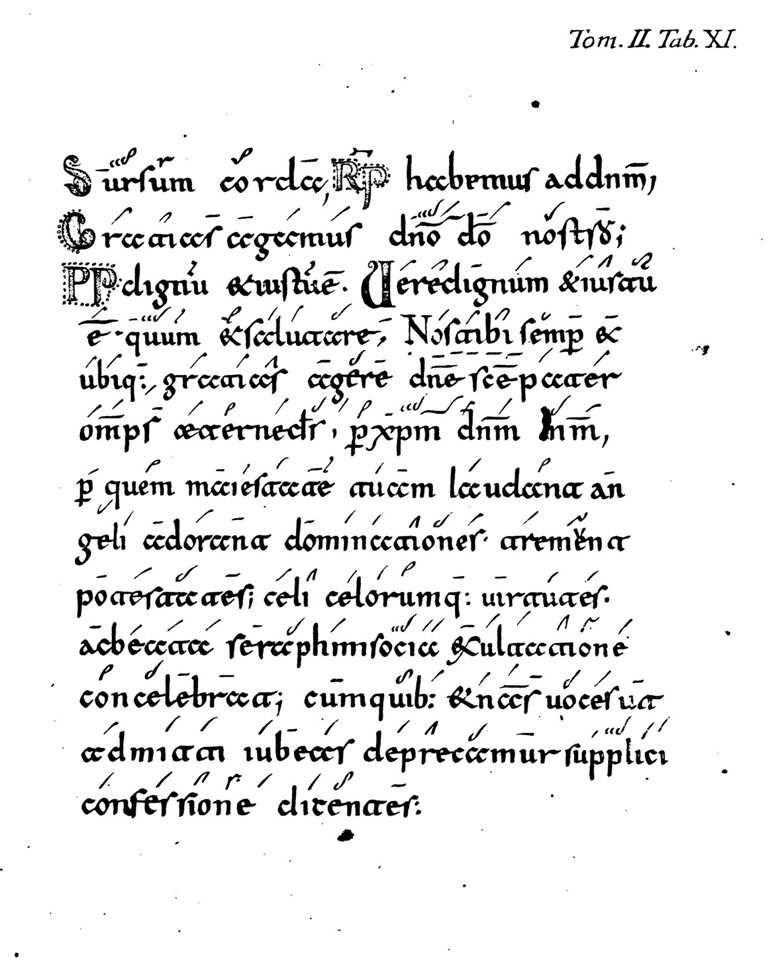 Tom. II. Tab. XI.
Sursum corda, Rp habemus ad dnm̄,
Gratias agamus dn̄o dō nostro;
PP dignū & iustūē. Uere dignum & iustū
ē. quum & salutare, Nos tibi semp̄ &
ubiq:, gratias agere dn̄e scē pater
om̄ps aeterne ds, p̄ xp̄m dnm̄ nm̄,
p̄ quem maiestatē tuam laudant an
geli adorant dominationes. tremunt
potestates; celi celorumq: uirtutes.
acbeata seraphim socia exultatione
concelebrant; cum quib: & nr̄as uoces ut
admitti iubeas deprecamur supplici
confessione dicentes: